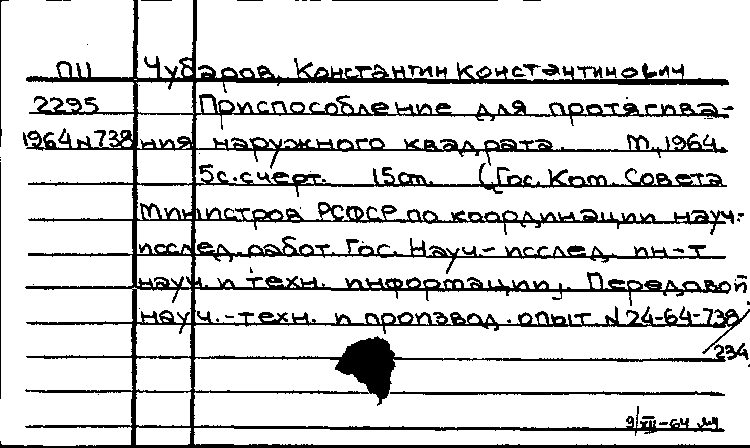 П11 Чубаров, Константин Константинович
2295 Приспособление для протягива-
1964 N738 ния наружного квадрата. М, 1964.
5с. с черт. 15см. (Гос. Ком. Совета
Министров РСФСР по координации науч.-
исслед. работ. Гос. Науч-исслед. ин-т
науч. и техн. информации). Передовой
науч.-техн. и производ. опыт N 24-64-738/
234
9/XII-64